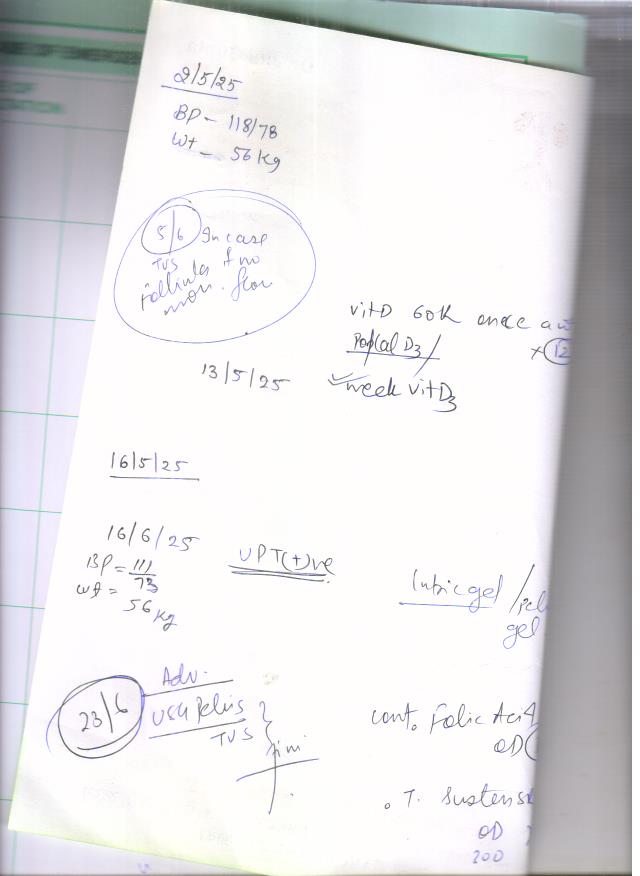 2/5/25
BP - 118/78
Wt - 56 Kg
5/6 In case
TVS if no
Follicular flow
mon.
vitD 60K once a w
D3/
x 12
13/5/25 week VitD3
16/5/25
16/6/25
UPT(+)ve
BP = 111/73
wt = 56 Kg
gel /
gel
Adv.
23/6 USG Pelvis
TVS
cont. Folic Acid
OD
. T. Sustens
OD
200